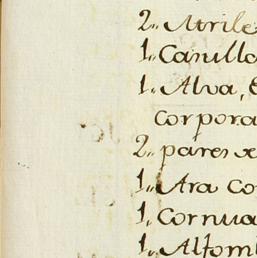 2,, Atrile
1,, Casullo
1,, Alva,
corpora
2,, pares
1,, Ara co
1,, Cornua
1,, Alfom